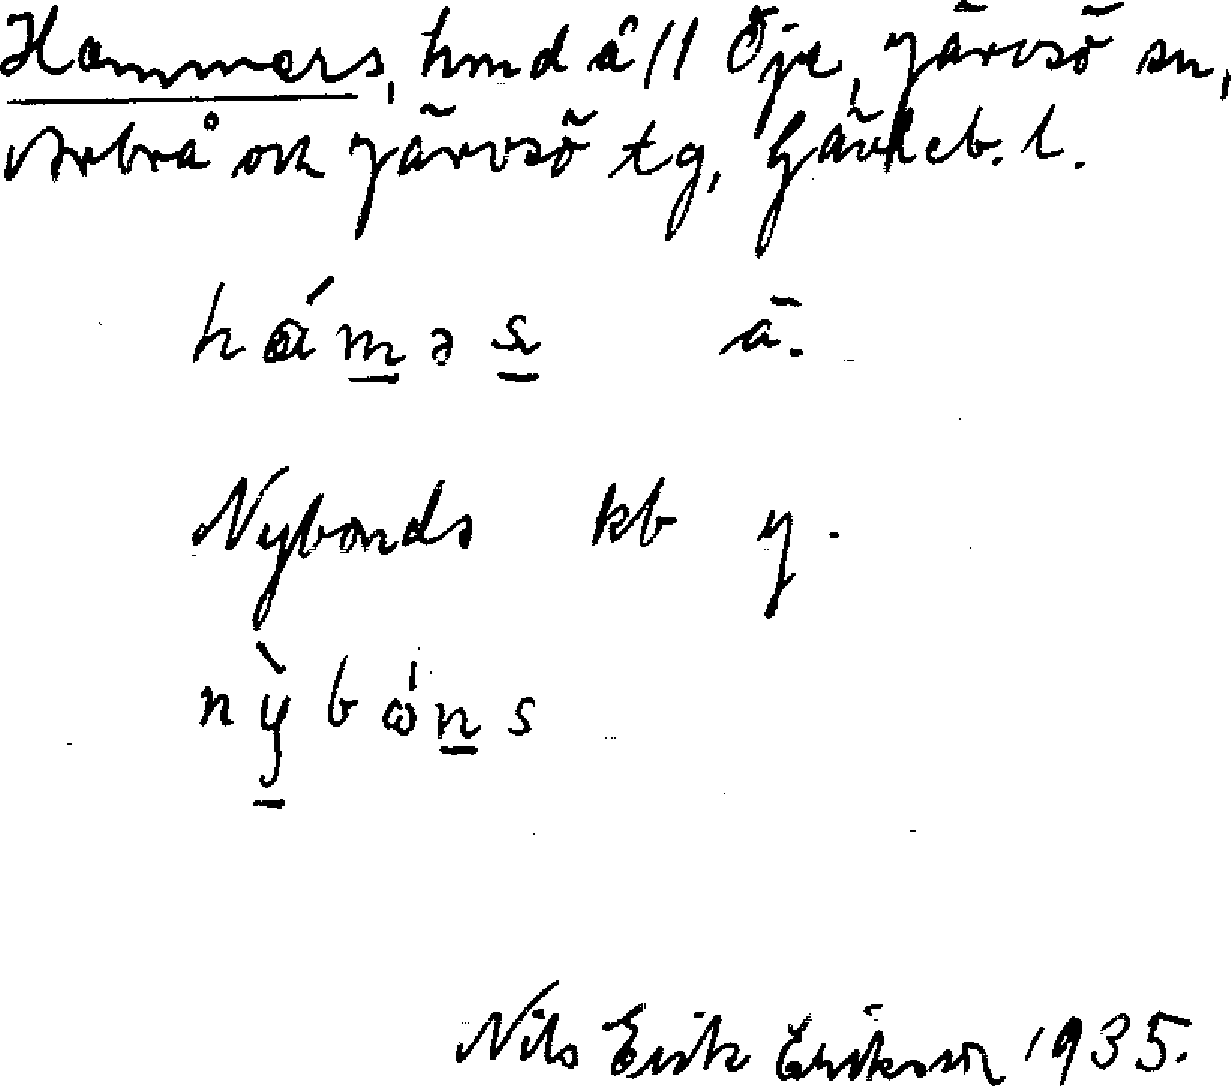 Hammers, hmd å 11 Öje, Järvsö sn,
Arbrå och Järvsö tg, Gävleb. l.
háməs ä.
Nybonds kb y.
nỳbóns
Nils Erik Eriksson 1935.